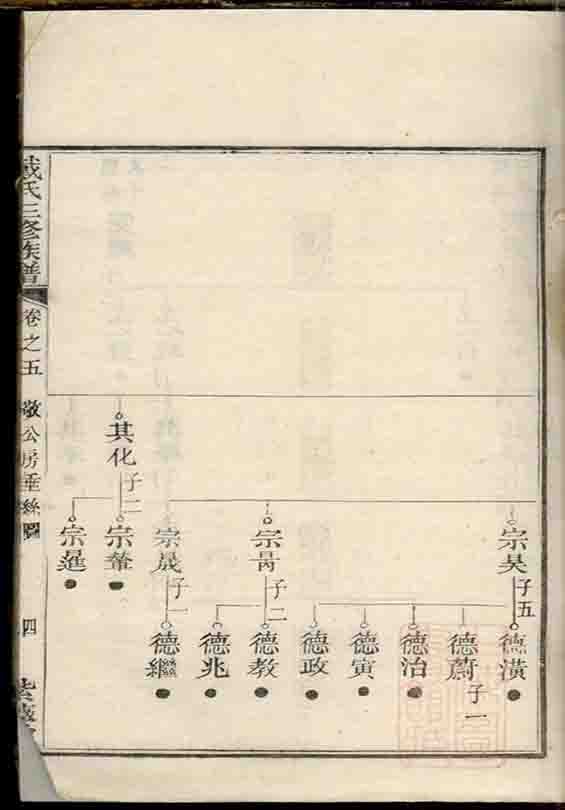 戴氏三修族譜
卷之五
敬公房垂絲圖
四
其化
子二
宗昊
子五
宗晟
子一
宗
德潢
德蔚
子一
德治
德寅
德政
子二
德教
德兆
德繼